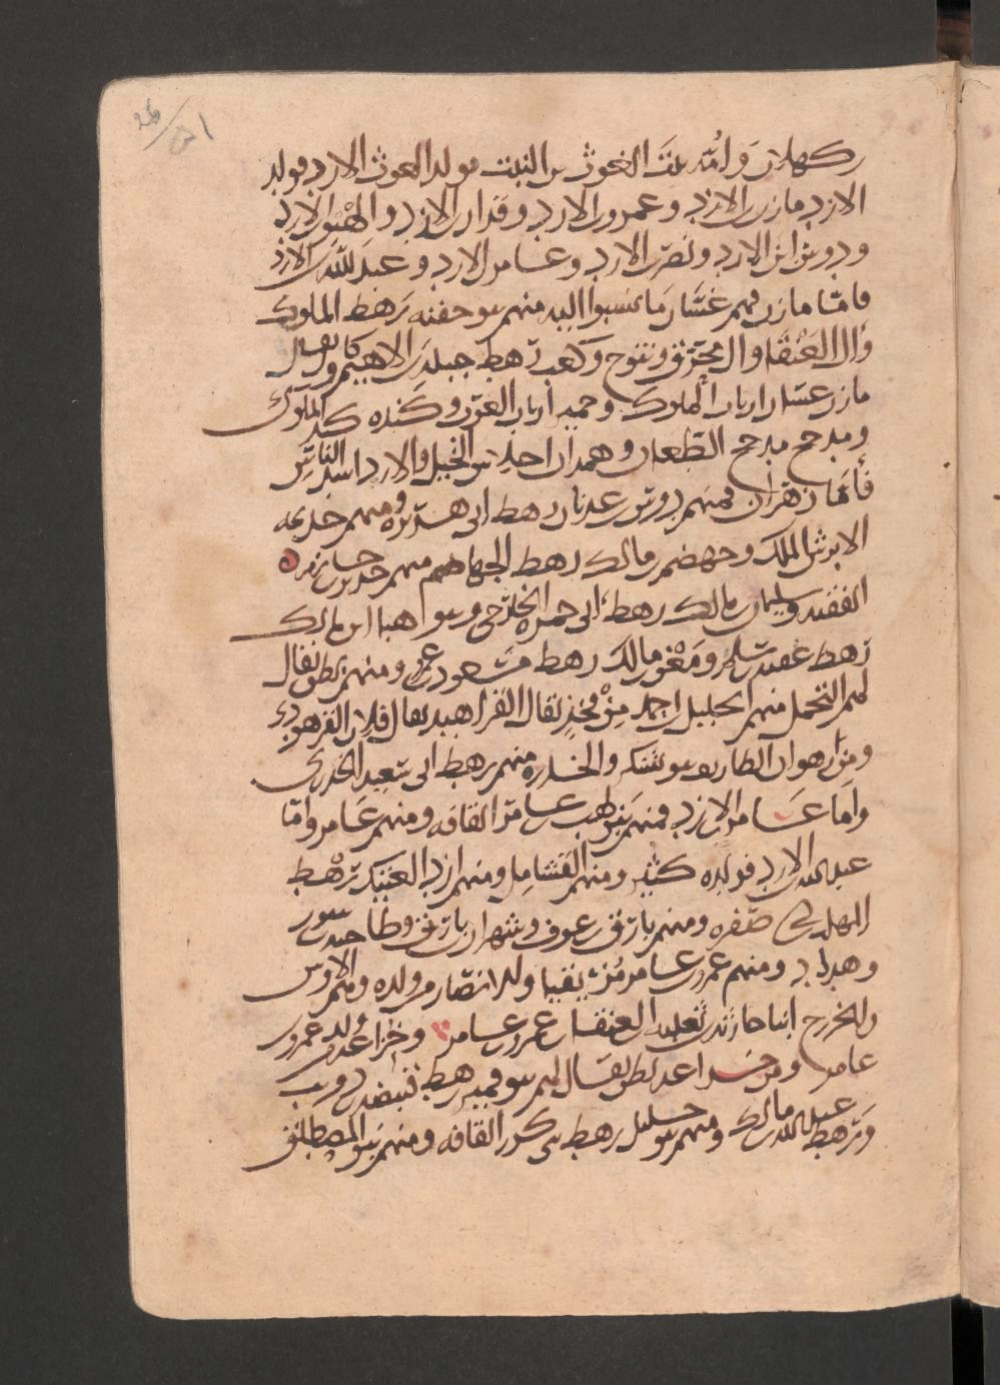 كهلان وامه بنت الغوث بن النبت فولد الغوث الازد فولد
الازد مازن بن الازد وعمرو بن الازد وقدار بن الازد والهنو بن الازد
ودوس ابن الازد ونصر بن الازد وعامر بن الازد وعبد الله بن الازد
فاما مازن فهم غسان وما نسبوا اليه منهم بنو جفنه رهط الملوك
وال العنقا وال محرق وتنوخ وكعب رهط جبله بن الايهم ويقال
مازن غسان ارباب الملوك وحمير ارباب العرب وكنده كند الملوك
ومذحج مذحج الطعان وهمدان احلاس الخيل والازد اسد الناس
فاما زهران فمنهم دوس بن عدنان رهط ابي هريره ومنهم جذيمه
الابرش الملك وجهضم بن مالك رهط الجهاضم منهم جرير بن حازم
الفقيه وسليمان بن مالك رهط ابي حمزه الخارجي وبنوا هنا ابن مالك
رهط عقبه بن سلم ومعن بن مالك رهط مسعود بن عمرو ومنهم بطن يقال
لهم اليحمد منهم الخليل بن احمد من فخذ يقال الفراهيد يقال فلان الفرهودي
ومن زهران الطا بنو شكر والخدره منهم رهط ابى سعيد الخدري
واما عامر بن الازد فمنهم بنو لهب بن عامر القافه ومنهم عامر واما
عبد الله بن الازد فولده كثير ومنهم القسامل ومنهم ازد العتيك رهط
المهلب بن ابي صفره ومنهم بارق بن عوف وشهران بن بارق وطاحيه بن سود
وهداد ومنهم عمرو بن عامر مزيقيا ولد الانصار من ولده ومنهم الاوس
والخزرج ابنا حارثه بن ثعلبه العنقا بن عمرو بن عامر وخزاعه من ولد عمرو بن
عامر ومن خزاعه بطن يقال لهم بنو قمير رهط قبيصه بن ذويب
ورهط عبد الله بن مالك ومنهم بنو حليل رهط بني كرز القافه ومنهم بنو المصطلق